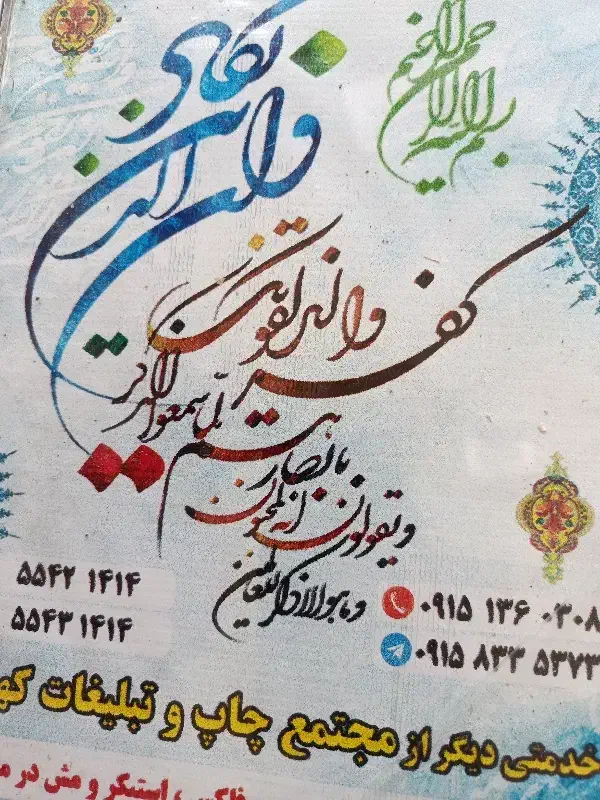 بسم الله الرحمن الرحیم
وان یکاد الذین
کفروا لیزلقونک
بابصارهم لما سمعوا الذکر
و یقولون انه لمجنون
و ما هو الا ذکر للعالمین
۵۵۴۲ ۱۴۱۴
۵۵۴۳ ۱۴۱۴
۰۹۱۵ ۱۳۶ ۰۳۰۸
۰۹۱۵ ۸۳۳ ۵۳۷۳
خدمتی دیگر از مجتمع چاپ و تبلیغات
، استیکر و مش در